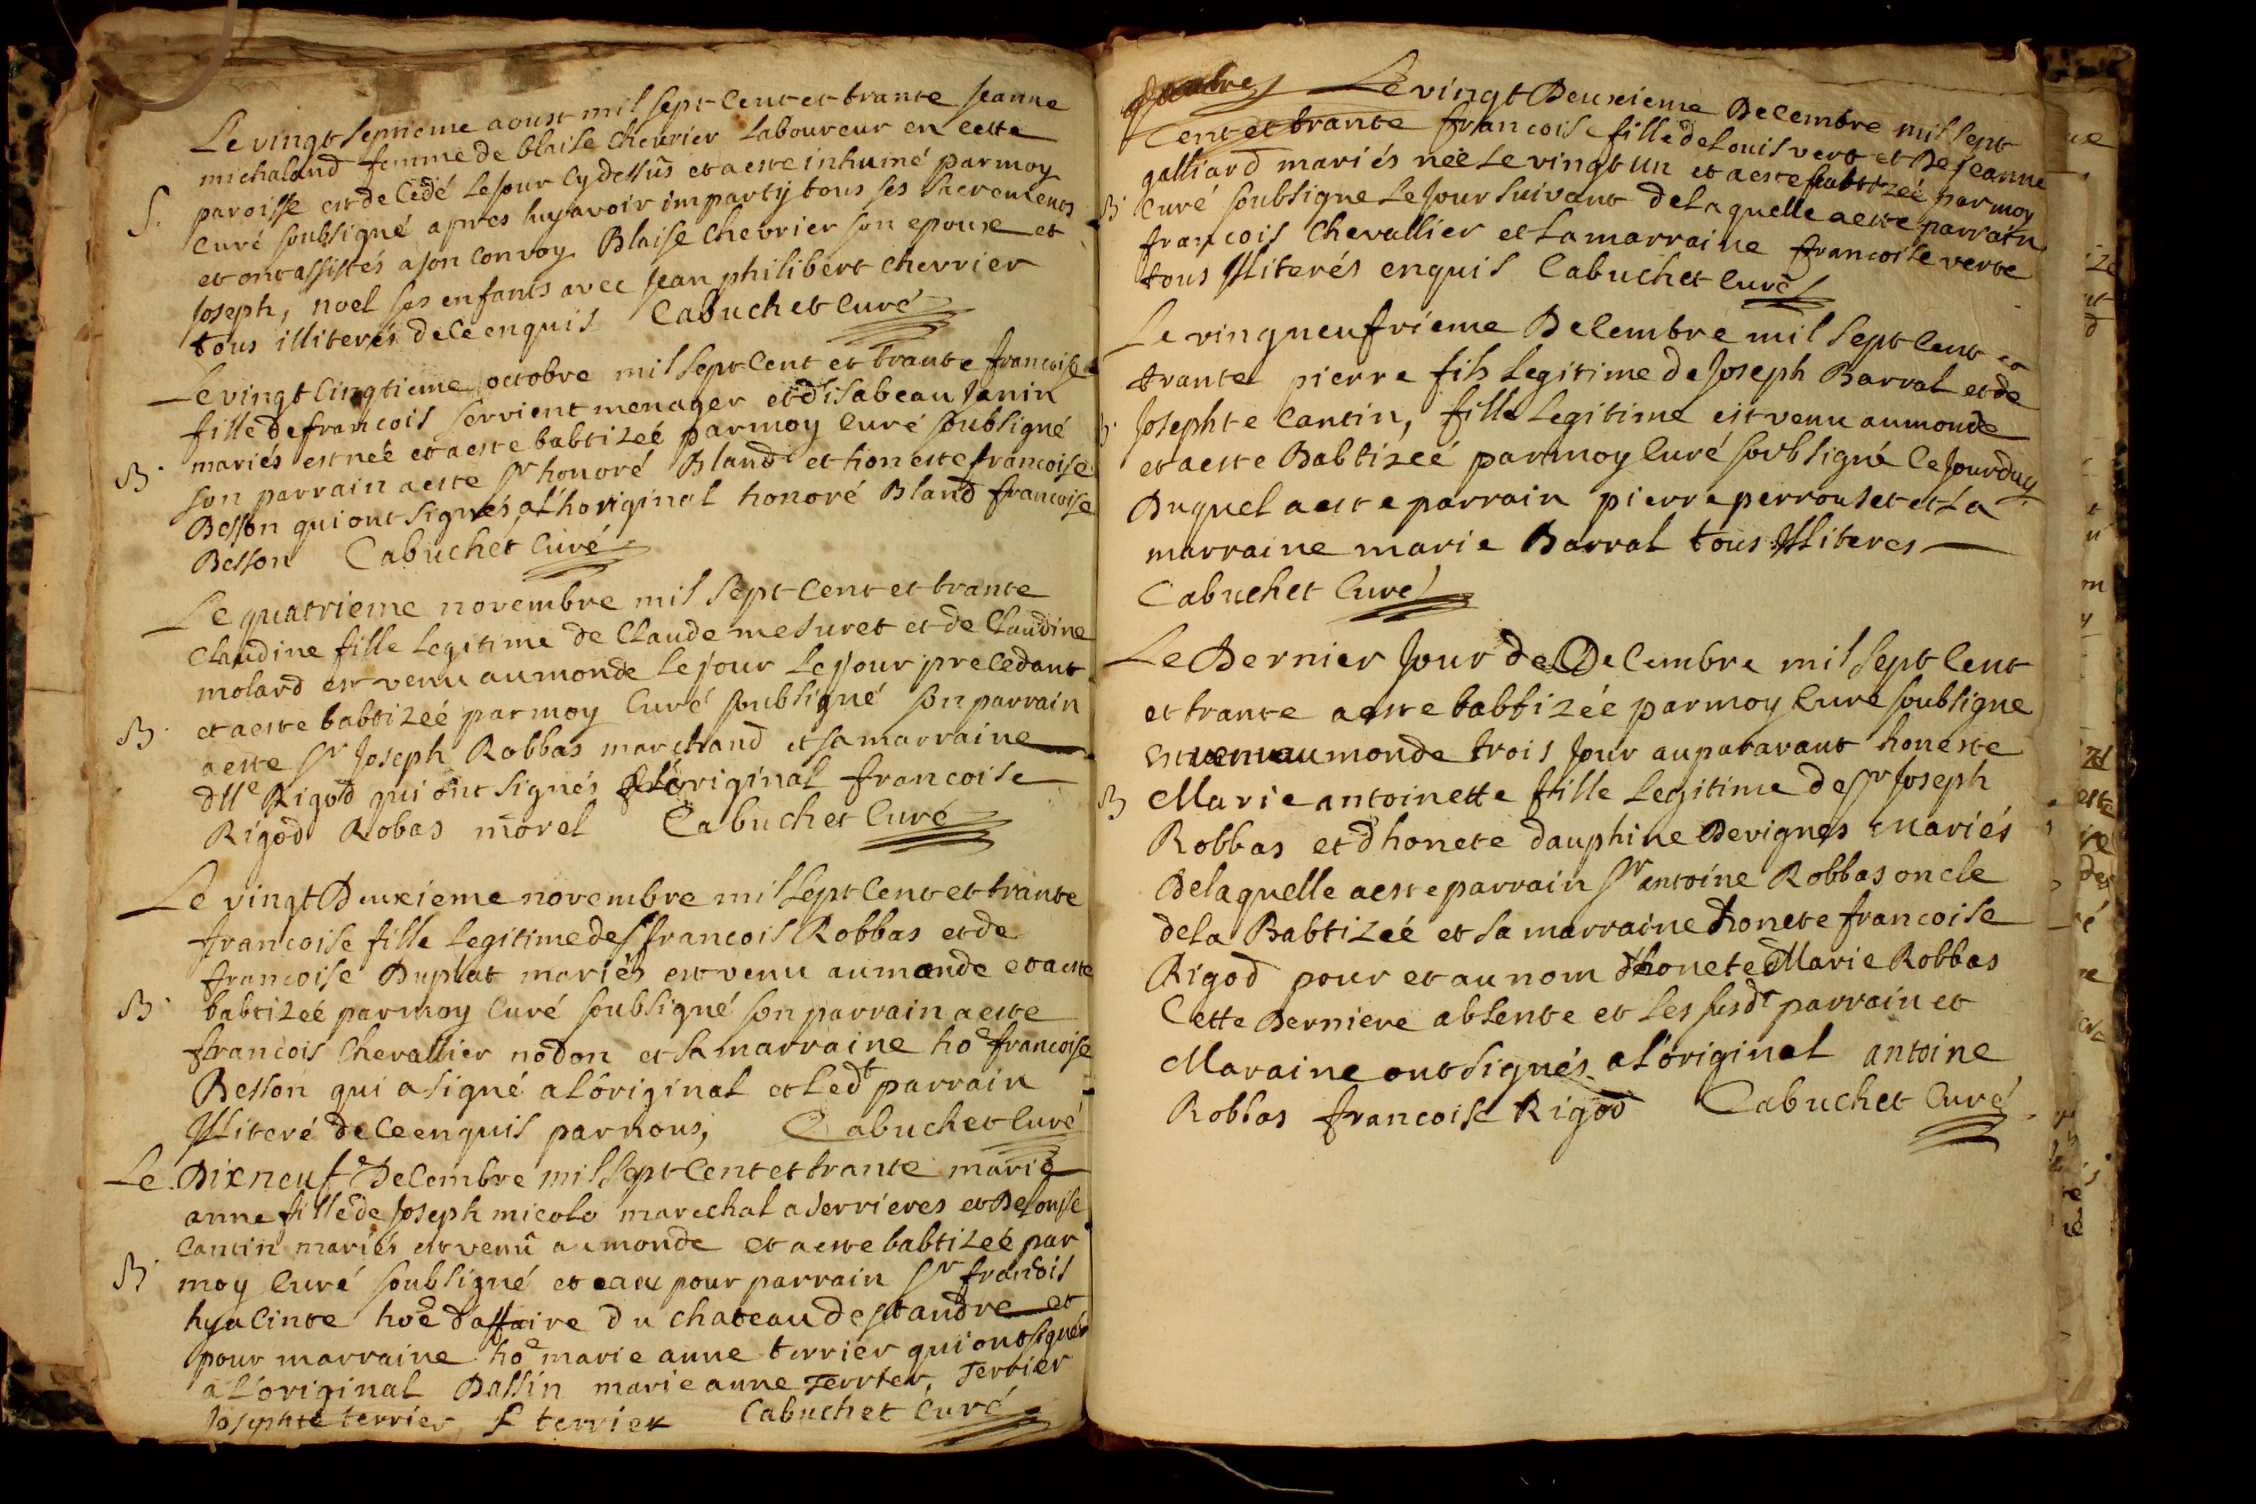 Le vingt septieme aoust mil sept cent et trante Jeanne
michaland femme de blaise Chevrier laboureur en cette
paroisse est decedé le jour cydessus et a este inhumé par moy
S.
Curé soubsigné apres luy avoir imparty tous ses sacrements
et ont assistés a son convoy Blaise Chevrier son epoux et
Joseph, noel ses enfants avec Jean philibert Chevrier
tous illiterés de ce enquis Cabuchet Curé
Le vingt cinqtieme octobre mil sept cent et trante francoise
fille de francois servient menager et d'isabeau Janin
mariés est neé et a este babtizeé par moy Curé soubsigné
B.
son parrain a este Sr honoré Bland et honeste francoise
Besson qui ont signés a l'horiginal honoré Bland francoise
Besson Cabuchet Curé
Le quatrieme novembre mil sept cent et trante
Claudine fille legitime de Claude mesuret et de Claudine
molard est venu au monde le jour le jour precedant
et a este babtizeé par moy Curé soubsigné son parrain
B.
a este Sr Joseph Robbas marchand et sa marraine
dlle Rigod qui ont signés a l'original francoise
Rigod Robas morel Cabuchet Curé
Le vingt Deuxieme novembre mil sept cent et trante
francoise fille legitime de Sr francois Robbas et de
francoise Duplat mariés est venu au monde et a este
B.
babtizeé par moy Curé soubsigné son parrain a este
francois Chevallier nodon et sa marraine hoe francoise
Besson qui a signé a l'original et ledt parrain
Illiteré de ce enquis par nous, Cabuchet Curé
Le Dixneufe Decembre mil sept cent et trante marie
anne fille de Joseph micolo marechal a serrieres et De louise
Cantin mariés est venu au monde et a este babtizeé par
B.
moy Curé soubsigné et a eu pour parrain Sr francois
hyacinte hoe d'affaire du chateau de St andre et
pour marraine hoe marie anne terrier qui ont signés
a l'original Dassin marie anne Terrier, Terrier
Josephte terrier, f terrier Cabuchet Curé
Le vingt Deuxieme Decembre mil sept
Cent et trante francoise fille de Louis vert et De Jeanne
galliard mariés neé le vingt un et a este babtizeé par moy
B.
Curé soubsigné le jour suivant de laquelle a este parrain
francois Chevallier et la marraine francoise verte
tous Illiterés enquis Cabuchet Curé
Le vingneufvieme Decembre mil sept cent et
trante pierre fils legitime de Joseph Barral et de
B.
Josephte Cantin, fille legitime est venu au monde
et a este Babtizeé par moy Curé soubsigné le jourduy
Duquel a este parrain pierre perrouset et la
marraine marie Barral tous Illiteres
Cabuchet Curé
Le Dernier Jour de Decembre mil sept cent
et trante a este babtizéé par moy Curé soubsigne
est venu au monde trois jour auparavant honeste
B
Marie antoinette fille legitime de Sr Joseph
Robbas et d'honete dauphine Devignes Mariés
De laquelle a este parrain Sr antoine Robbas oncle
de la Babtizeé et sa marraine honete francoise
Rigod pour et au nom d'honete Marie Robbas
Cette Derniere absente et les susdt parrain et
Maraine ont signés a l'original antoine
Robbas francoise Rigod Cabuchet Curé